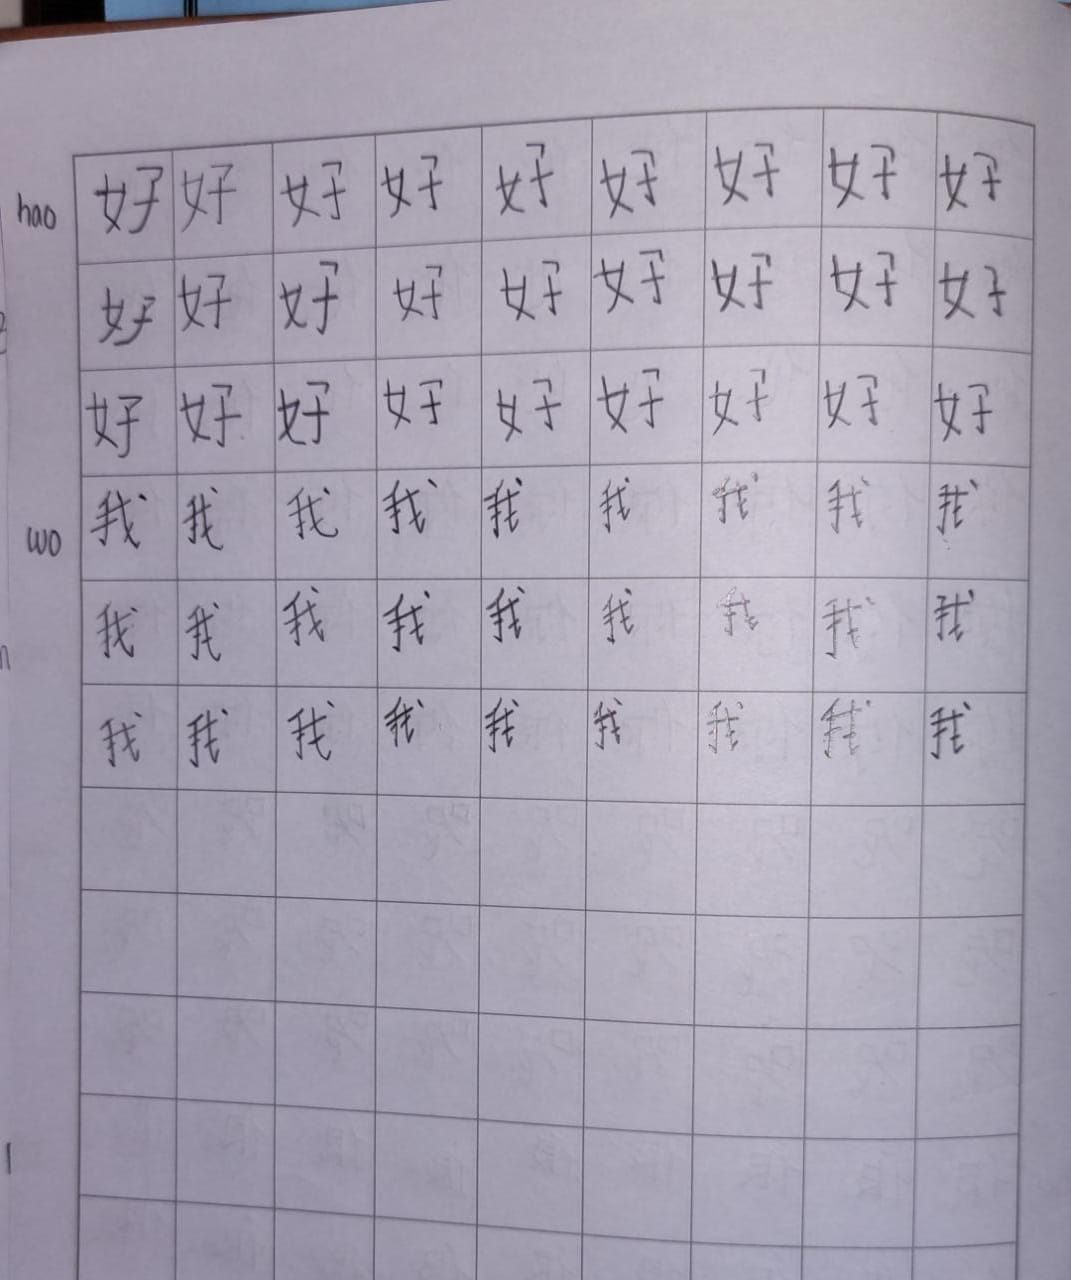 hao 好 好 好 好 好 好 好 好 好
好 好 好 好 好 好 好 好 好
好 好 好 好 好 好 好 好 好
wo 我 我 我 我 我 我 我 我 我
我 我 我 我 我 我 我 我 我
我 我 我 我 我 我 我 我 我